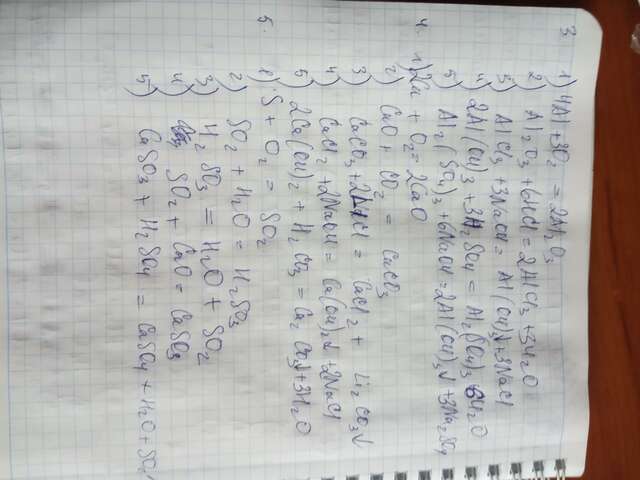 3
1) 4Al + 3O2 = 2Al2O3
2) Al2O3 + 6HCl = 2AlCl3 + 3H2O
3) AlCl3 + 3NaOH = Al(OH)3↓ + 3NaCl
4) 2Al(OH)3 + 3H2SO4 = Al2(SO4)3 + 6H2O
5) Al2(SO4)3 + 6NaOH = 2Al(OH)3↓ + 3Na2SO4
4. 1) 2Ca + O2 = 2CaO
2) CaO + CO2 = CaCO3
3) CaCO3 + 2LiCl = CaCl2 + Li2CO3↓
4) CaCl2 + 2NaOH = Ca(OH)2↓ + 2NaCl
5) 2Ca(OH)2 + H2CO3 = Ca2CO3↓ + 3H2O
5. 1) S + O2 = SO2
2) SO2 + H2O = H2SO3
3) H2SO3 = H2O + SO2
4) SO2 + CaO = CaSO3
5) CaSO3 + H2SO4 = CaSO4 + H2O + SO2